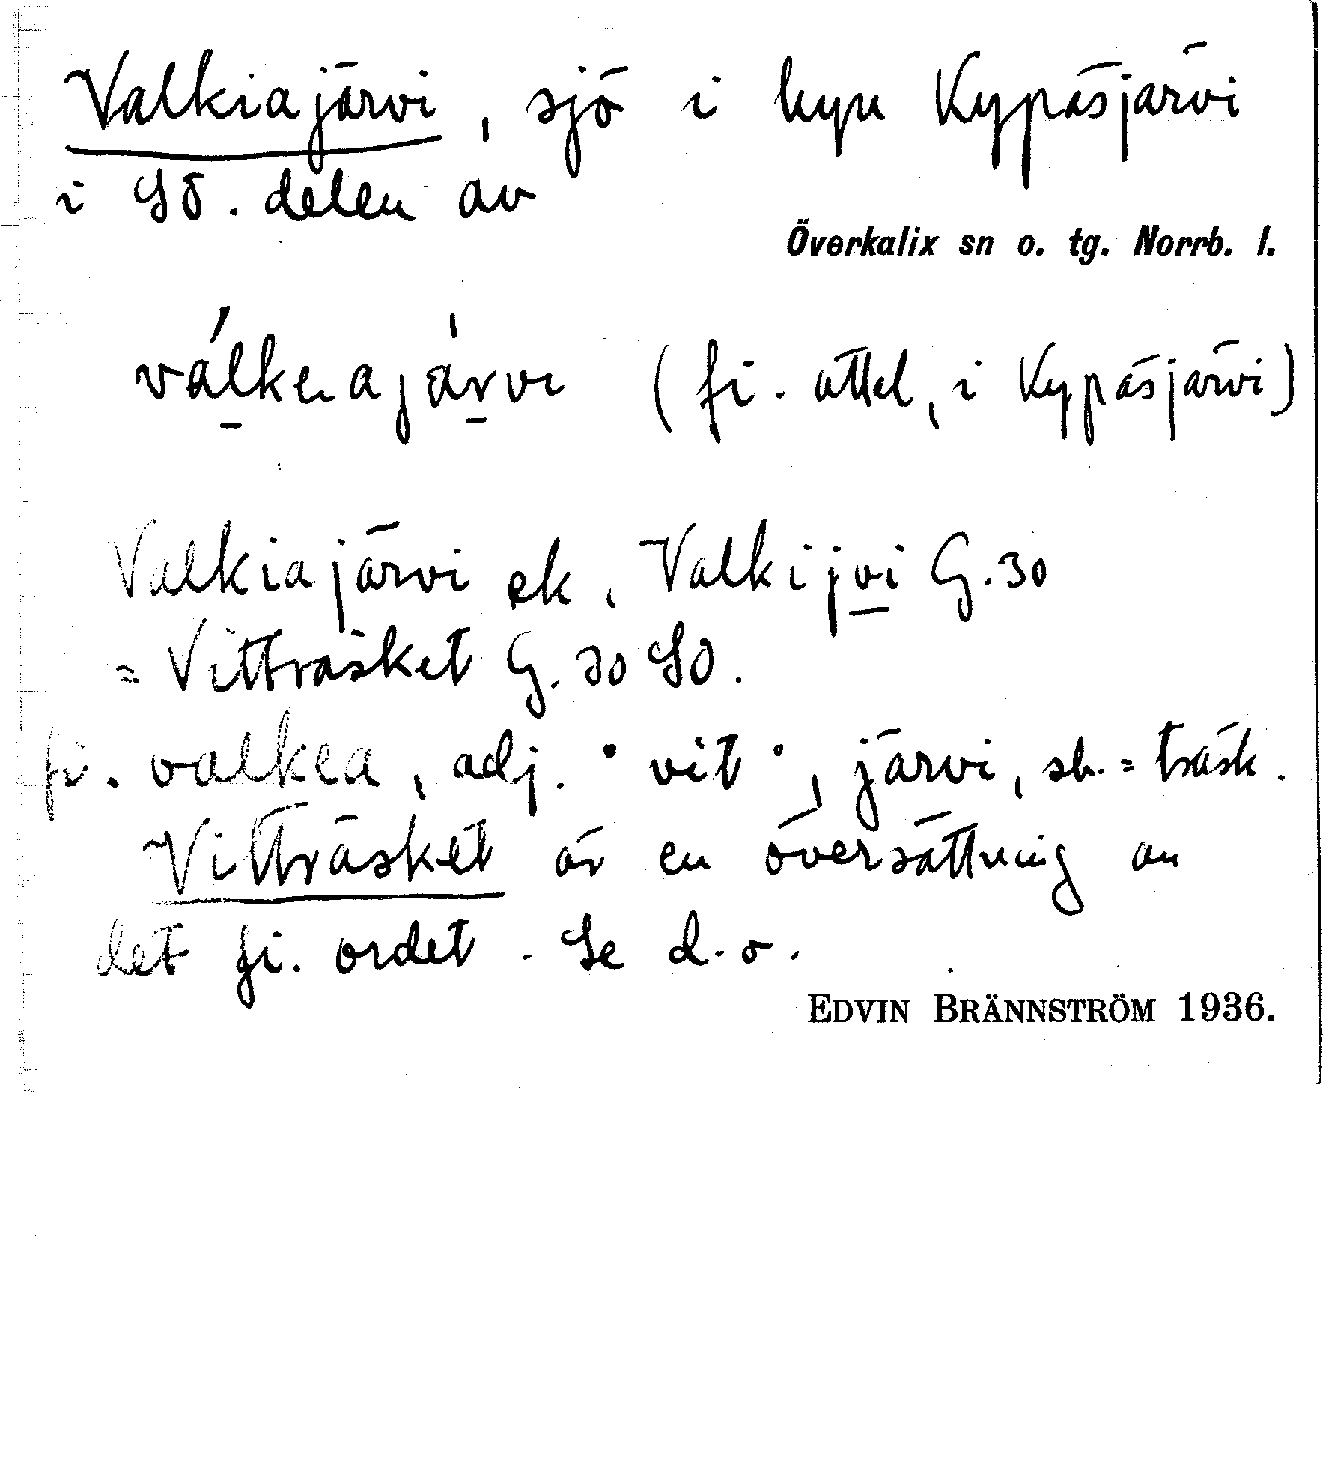 Valkiajärvi, sjö i byn Kypäsjärvi
i SÖ. delen av
Överkalix sn o. tg. Norrb. l.
(fi. uttal, i Kypäsjärvi)
Valkiajärvi ek, Valkijvi G.30
= Vitträsket G. 30 SO.
fi. valkea, adj. "vit", järvi, sb. = träsk.
Vitträsket är en översättning av
det fi. ordet. Se d.o.
EDVIN BRÄNNSTRÖM 1936.